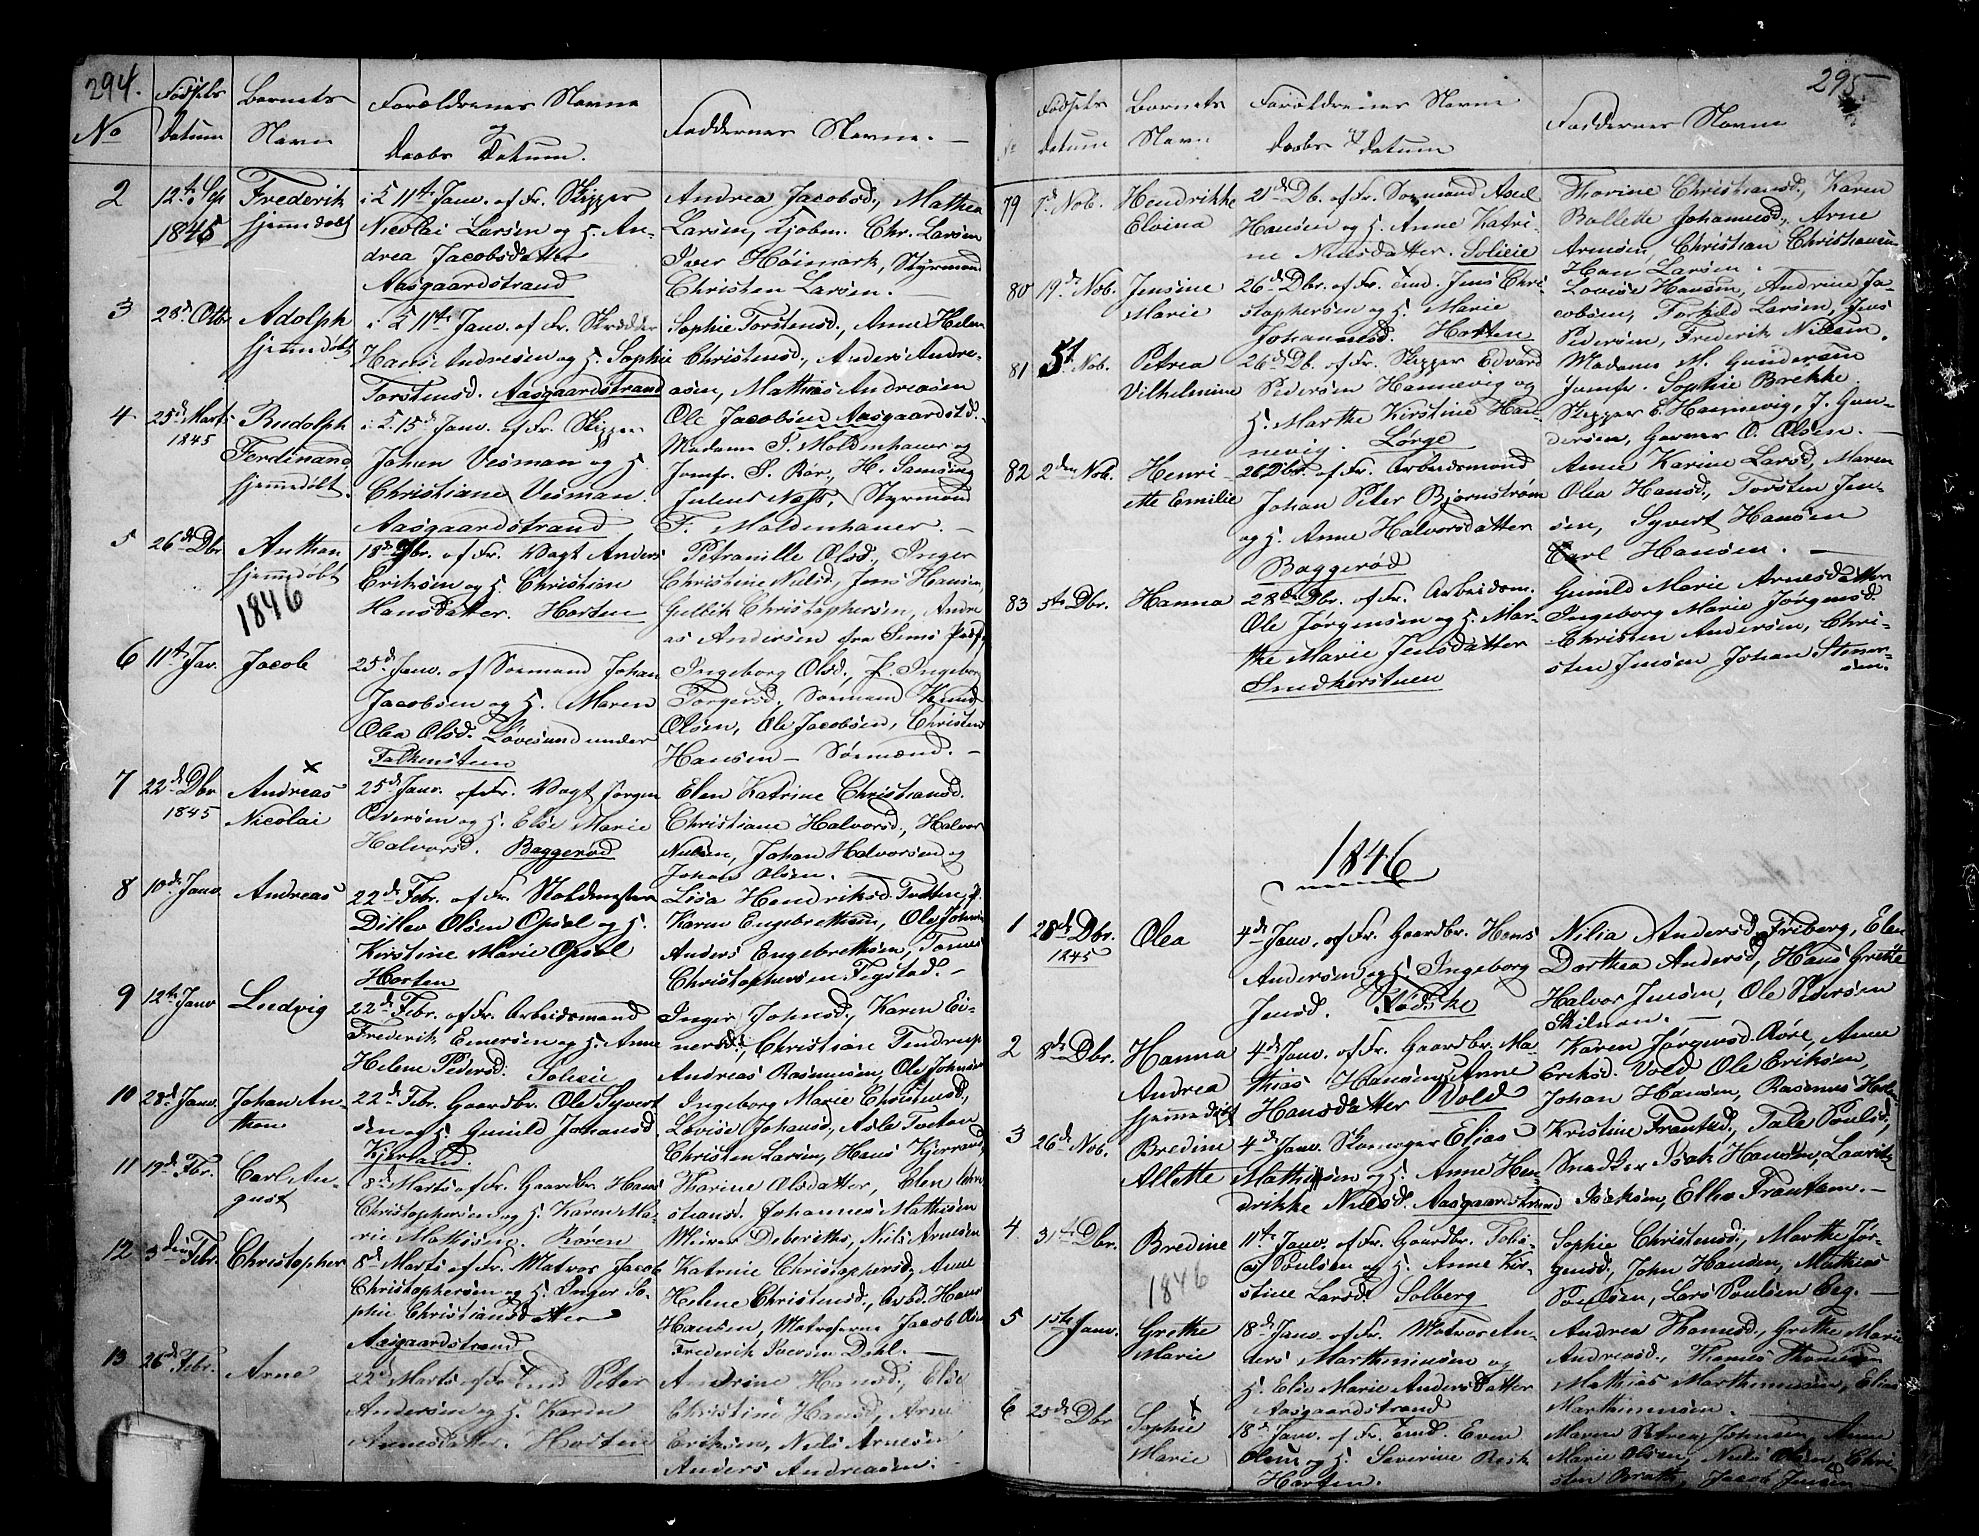 294.
No
Fødsels
Datum
Barnets
Navn
Forældrenes Navne
og
Daabs Datum.
Faddernes Navne.
2
12te Sep
1845
Frederik
hjemmedøbt
i K. 11te Janv. af Fr. Skipper
Nicolai Larsen og H. An-
drea Jacobsdatter
Aasgaardstrand
Andrea Jacobsd., Mathea
Larsen, Kjøbm. Chr. Larsen
Iver Høimark, Styrmand
Christen Larsen.
3
28d Octbr
Adolph
hjemmedøbt
i K. 11te Janv. af Fr. Skrædder
Hans Andresen og H. Sophie
Torstensd. Aasgaardstrand
Sophie Torstensd., Anne Helene
Christensd., Anders Andre-
asen, Mathias Andreasen
Ole Jacobsen Aasgaardstd.
4
25d Marts
1845
Rudolph
Ferdinand
hjemmedøbt.
i K. 15d Janv. af Fr. Skipper
Johan Vesman og H.
Christiane Vesman.
Aasgaardstrand
Madame P. Moldenhauer og
Jomfr. S. Bør, H. Samsing
Julius Nass, Styrmand
F. Moldenhauer.
5
26d Dbr
Anthon
hjemmedøbt
1846
18d Jbr. af Fr. Vagt Anders
Eriksen og H. Christine
Hansdatter. Horten
Petranille Olsd., Inger
Christine Nielsd., Jens Hansen,
Gulbik Christophersen, Andre
as Andersen fra Sems Præst.
6
11te Jav.
Jacob
25d Janv. af Sømand Johan
Jacobsen og H. Maren
Olea Olsd. Løvesund under
Falkensteen
Ingeborg Olsd., P. Ingeborg
Torgersd., Sømand Knud
Olsen, Ole Jacobsen, Christen
Hansen – Sømænd. –
7
22d Dbr
1845
Andreas
Nicolai
25d Janv. af Fr. Vagt Jørgen
Iversen og H. Else Marie
Halvorsd. Baggerød
Elen Katrine Christiansd.
Christiane Halvorsd., Halvor
Nielsen, Johan Halvorsen og
Johan Olsen.
8
10d Janv
Andreas
22d Febr. af Fr. Kloldmester
Ditlev Olsen Opsal og H.
Kirstine Marie Opsal
Horten
Lisa Hendriksd. Tveten, P.
Karen Engebrethsen, Ole Johnsen
Anders Engebrethsen, Tomas
Christophersen Tegstad. –
9
12te Janv
Ludvig
22d Febr. af Fr. Arbeidsmand
Frederik Einersen og H. Anne
Helene Pedersd. Solieie
Inger Johnsd., Karen Ei-
nersd., Christian Tendrup
Andreas Rasmussen, Ole Johnsen
10
28d Janv.
Johan An-
thon
22d Febr. Gaardbr. Ole Syvert
sen og H. Gunild Johansd
Kjærland.
Ingeborg Marie Christensd.,
Lovise Johansd., Asle Tveten
Christen Larsen, Hans Kjerrand,
11
19d Fbr.
Carl Au-
gust
8d Marts af Fr. Gaardbr. Hans
Christophersen og H. Karen Ma-
rie Mathisen. Røren
Tharine Olsdatter, Elen Chri
stiansd. Johannes Mathisen
Murer Deberitz, Nils Arnesen
12
3den Febr.
Christopher
8d Marts af Fr. Matros Jacob
Christophersen og H. Inger So-
phie Christiansdatter
Aasgaardstrand
Katrine Christophersd., Anne
Helene Christensd., Arbd. Hans
Hansen, Matroserne Jacob Olsen
Frederik Iversen Dehl. –
13
26d Febr.
Arne
22d Marts af Fr. Tmd. Peter
Andersen og H. Karen
Arnesdatter. Horten
Andrine Hansd., Else
Christine Hansd., Arne
Eriksen, Nils Arnesen
Anders Andreasen. –
295
No
Fødsels
Datum
Barnets
Navn
Forældrenes Navne
og
Daabs Datum
Faddernes Navne
79
7d Nob.
Hendrikke
Elvina
21d Db. af Fr. Sømand Axel
Hansen og H. Anne Katri-
ne Nielsdatter. Solieie
Thorine Christiansd., Karen
Bollette Johannesd., Arne
Arnesen, Christian Christiansen
Hans Larsen.
80
19d Nob.
Jensine
Marie
26d Dbr. af Fr. Tmd. Jens Chri-
stophersen og H. Marie
Johannesd. Horten
Lovise Hansen, Andrine Ja-
cobsen, Torkild Larsen, Jens
Pedersen, Frederik Nilsen.
81
5t Nob.
Petrea
Vilhelmine
26d Db. af Fr. Skipper Edvard
Pedersen Hannevig og
H. Marthe Kirstine Han-
nevig. Lørge
Madame M. Gundersen
Jomfr. Sophie Brekke
Skipper E. Hannevig, J. Gun-
dersen, Garver O. Olsen. –
82
2den Nob.
Henri
ette Emilie
26 Dbr. af Fr. Arbeidsmand
Johan Peter Bjørnstrøm
og H. Anne Halvorsdatter
Baggerød
Anne Karine Larsd., Maren
Olea Hansd., Torsten Jen-
sen, Syvert Hansen
Carl Hansen. –
83
5te Dbr.
Hanna
28de Dbr. af Fr. Arbeidsm.
Ole Jørgensen og H. Mar-
the Marie Jensdatter
Smedherstuen
Gunild Marie Arnesdatter
Ingeborg Marie Jørgensd.
Christen Andersen, Chri-
sten Jensen, Johan Stener-
sen.
1846
1
28d Dbr.
1845
Olea
4d Janv. af Fr. Gaardbr. Hans
Andersen og H. Ingeborg
Jensd. Rødske
Nilia Andersd. Friberg, Elen
Dorthea Andersd, Hans Grette
Halvor Jensen, Ole Pedersen
Skilman. –
2
8d Dbr.
Hanna
Andrea
hjemmedøbt
4d Janv. af Fr. Gaardbr. Ma-
thias Hansen og Anne
Hansdatter Vold
Karen Jørgensd. Røre, Anne
Eriksd. Vold Ole Eriksen,
Johan Hansen, Rasmus Hal
3
26d Nob.
Bredine
Allette
4d Janv. Skomager Elias
Mathisen og H. Anne Hen-
drikke Nilsd. Aasgaardstrand
Kristine Frantsd., Tale Poulsd.,
Snedker Isak Hansen, Lauritz
Isaksen, Ellev Frantsen. –
4
31te Dbr.
Bredine
1846
11te Janv. af Fr. Gaardbr. Tobi-
as Poulsen og H. Anne Kir-
stine Larsd. Solberg
Sophie Christensd., Marthe Jør-
gensd., John Hansen, Mathias
Poulsen, Lars Poulsen Eeg. –
5
15te Janv.
Grethe
Marie
18d Janv. af Fr. Matros An-
ders Marthinusen og
H. Elie Marie Andersdatter
Aasgaardstrand
Andrea Thomesd., Grethe Marie
Andreasd., Thomes Thomesen
Mathias Marthinusen, Elias
Marthinusen.
6
25d Dbr
Sophie
Marie
18d Janv. af Fr. Tmd. Even
Olsen og H. Severine Resk
Horten.
Maren Petrea Johnsen, Anne
Marie Olsen, Niels Olsen, Chri-
sten Brath, Jacob Jensen